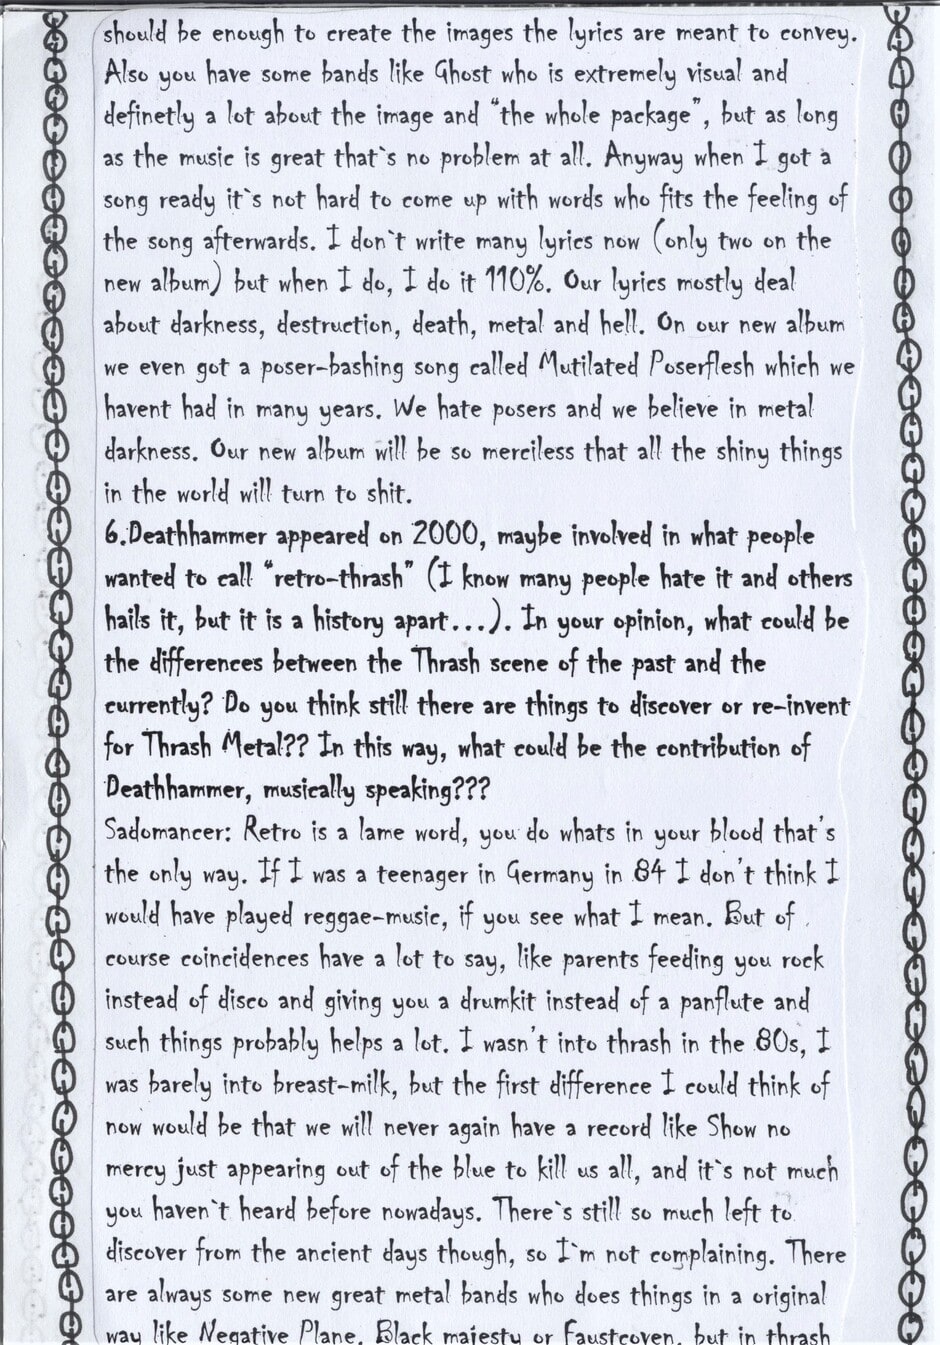 should be enough to create the images the lyrics are meant to convey.
Also you have some bands like Ghost who is extremely visual and
definetly a lot about the image and "the whole package", but as long
as the music is great that`s no problem at all. Anyway when I got a
song ready it`s not hard to come up with words who fits the feeling of
the song afterwards. I don`t write many lyrics now (only two on the
new album) but when I do, I do it 110%. Our lyrics mostly deal
about darkness, destruction, death, metal and hell. On our new album
we even got a poser-bashing song called Mutilated Poserflesh which we
havent had in many years. We hate posers and we believe in metal
darkness. Our new album will be so merciless that all the shiny things
in the world will turn to shit.
6.Deathhammer appeared on 2000, maybe involved in what people
wanted to call "retro-thrash" (I know many people hate it and others
hails it, but it is a history apart...). In your opinion, what could be
the differences between the Thrash scene of the past and the
currently? Do you think still there are things to discover or re-invent
for Thrash Metal?? In this way, what could be the contribution of
Deathhammer, musically speaking???
Sadomancer: Retro is a lame word, you do whats in your blood that's
the only way. If I was a teenager in Germany in 84 I don't think I
would have played reggae-music, if you see what I mean. But of
course coincidences have a lot to say, like parents feeding you rock
instead of disco and giving you a drumkit instead of a panflute and
such things probably helps a lot. I wasn't into thrash in the 80s, I
was barely into breast-milk, but the first difference I could think of
now would be that we will never again have a record like Show no
mercy just appearing out of the blue to kill us all, and it`s not much
you haven`t heard before nowadays. There`s still so much left to
discover from the ancient days though, so I`m not complaining. There
are always some new great metal bands who does things in a original
way like Negative Plane, Black majesty or Faustcoven, but in thrash